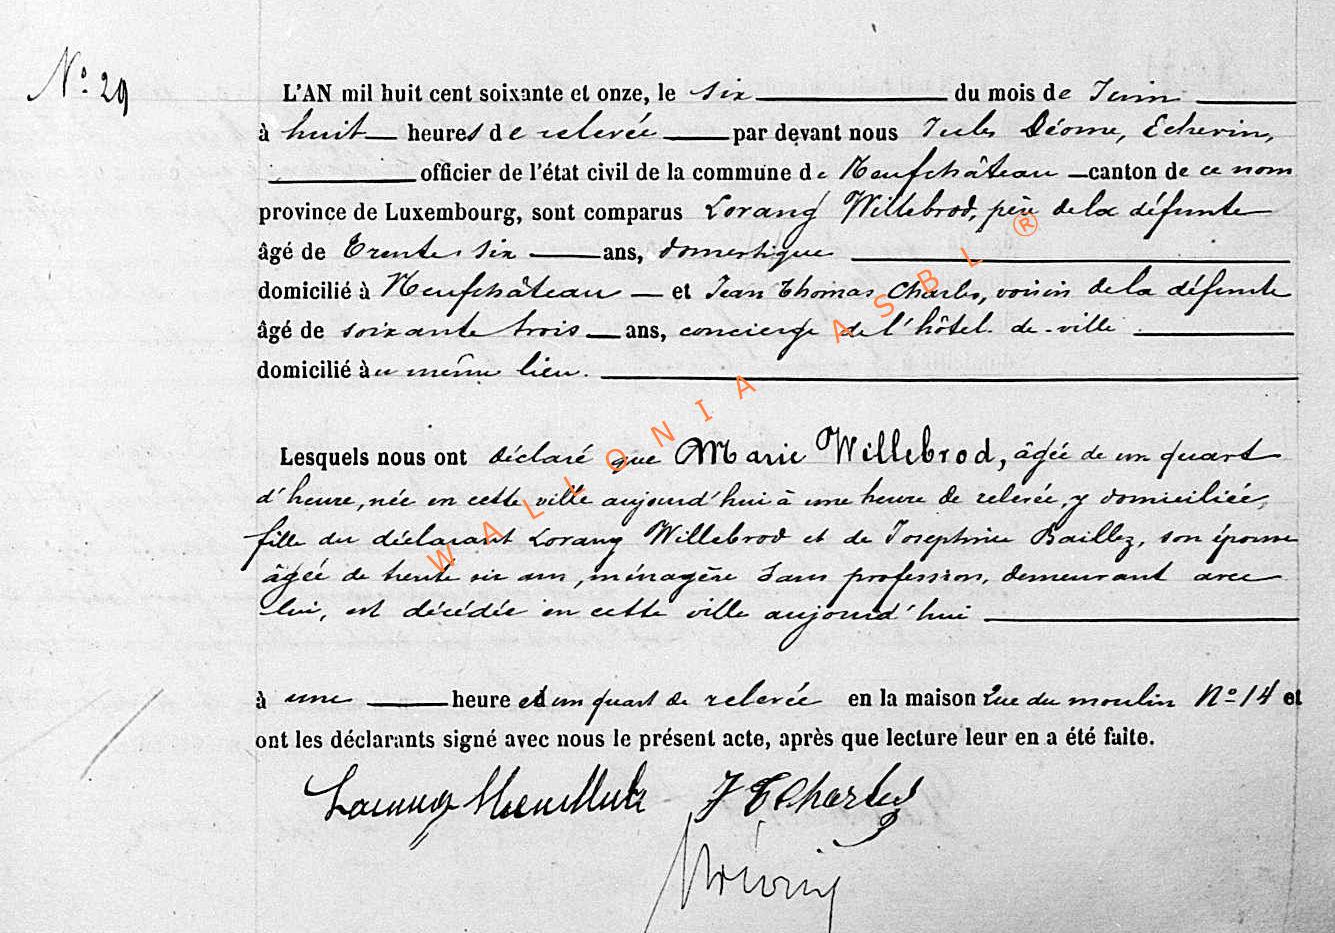 N° 29
L'AN mil huit cent soixante et onze, le six du mois de Juin
à huit heures de relevée par devant nous Jules Déome, Echevin,
officier de l'état civil de la commune de Neufchâteau canton de ce nom
province de Luxembourg, sont comparus Lorang Willebrod, père de la défunte
âgé de trente six ans, domestique
domicilié à Neufchâteau et Jean Thomas Charles, voisin de la défunte
âgé de soixante trois ans, concierge de l'hôtel de-ville
domicilié au même lieu.
Lesquels nous ont déclaré que Marie Willebrod, âgée de un quart
d'heure, née en cette ville aujourd'hui à une heure de relevée, y domiciliée,
fille du déclarant Lorang Willebrod et de Josephine Baillez, son épouse
âgée de trente six ans, ménagère sans profession, demeurant avec
lui, est décédée en cette ville aujourd'hui
à une heure et un quart de relevée en la maison Rue du moulin N° 14 et
ont les déclarants signé avec nous le présent acte, après que lecture leur en a été faite.
J T Charles
WALLONIA ASBL ®